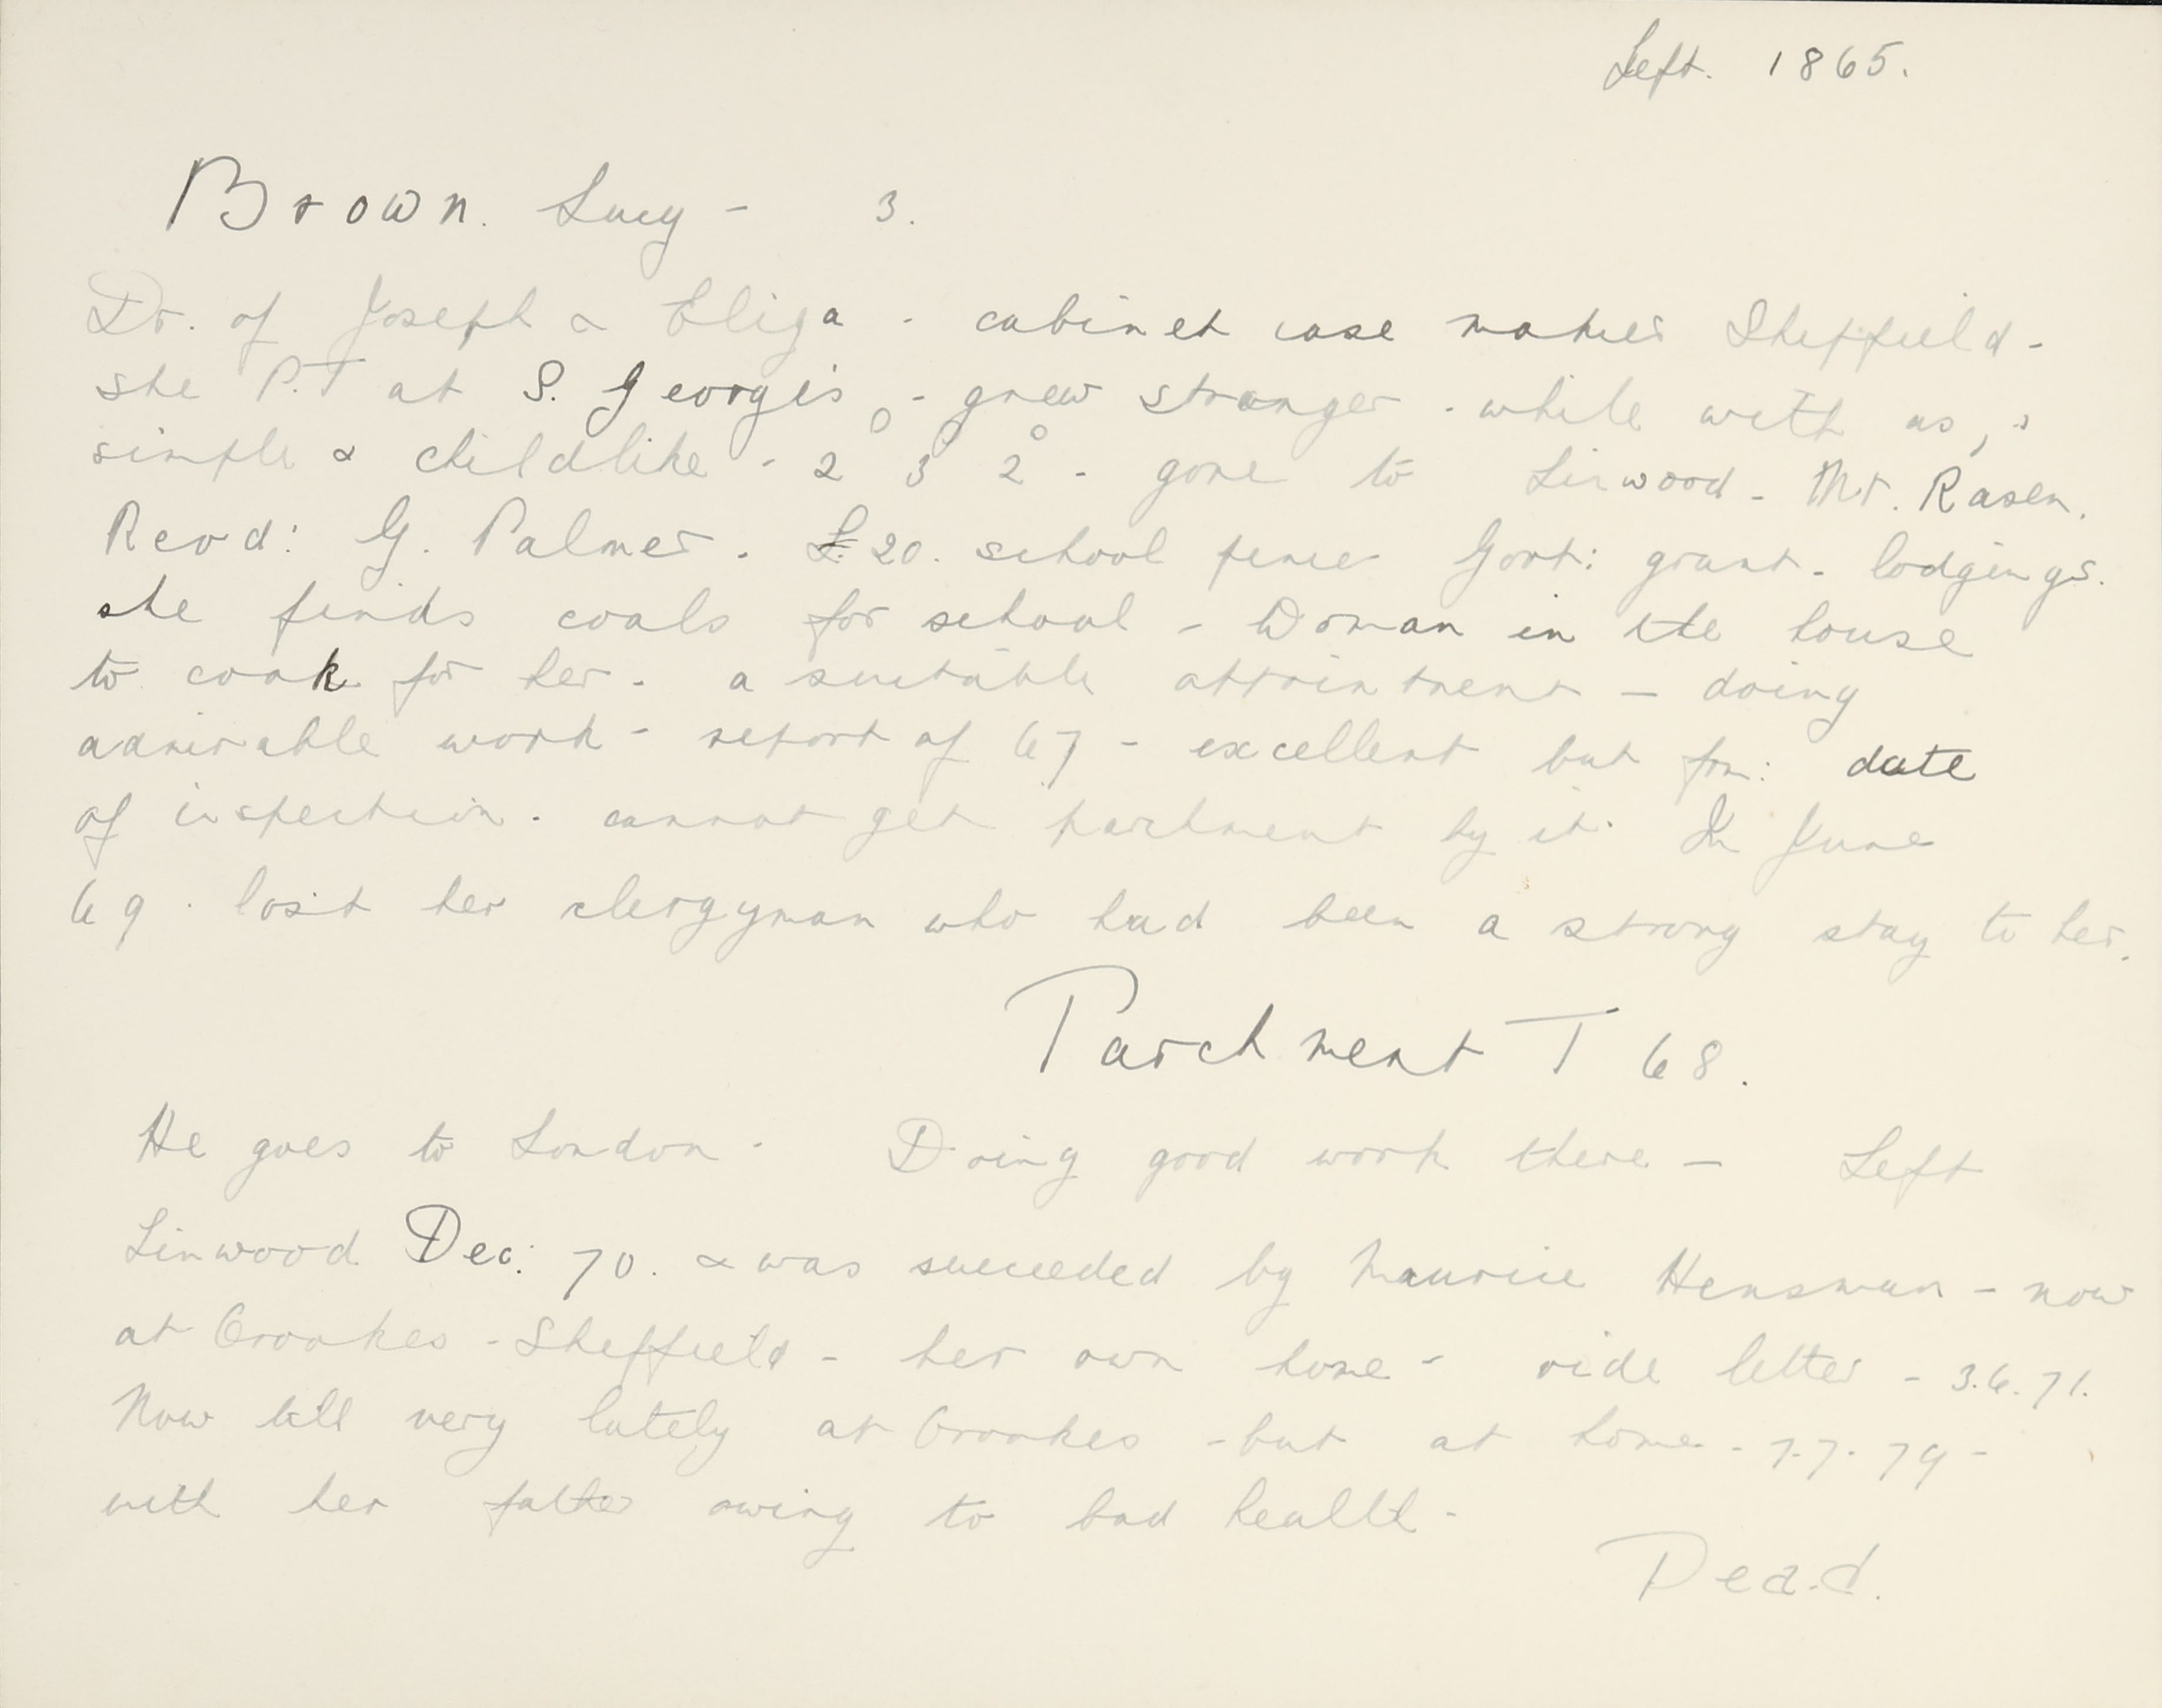 Left. 1865.
Brown. Lucy - 3.
Dr. of Joseph & Eliza - cabinet case maker Sheffield -
she P.T at S. George's, - grew stronger - while with us,
simple & childlike - 2 3 2 - gone to Linwood - Mt. Rasen.
Revd: G. Palmer. £20. school pence Govt: grant - lodgings.
she finds coals for school - Woman in the house
to cook for her. a suitable appointment — doing
admirable work - report of 67 - excellent but fm: date
of inspection. cannot get parchment by it. In June
69. lost her clergyman who had been a strong stay to her.
Parchment T 68.
He goes to London - Doing good work there — Left
Linwood Dec: 70. & was succeeded by Maurice Hensman - now
at Crookes - Sheffield - her own home - vide letter - 3.6.71.
Now till very lately at Crookes - but at home - 7.7.79 -
with her father owing to bad health -
Dead.